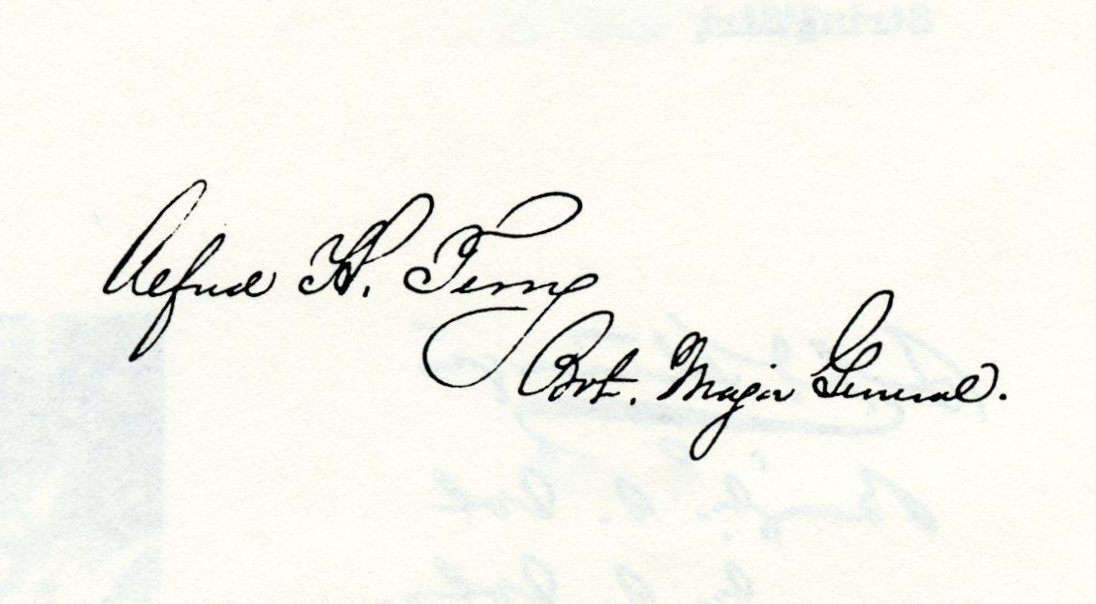 Alfred H. Terry
Bvt. Major General.